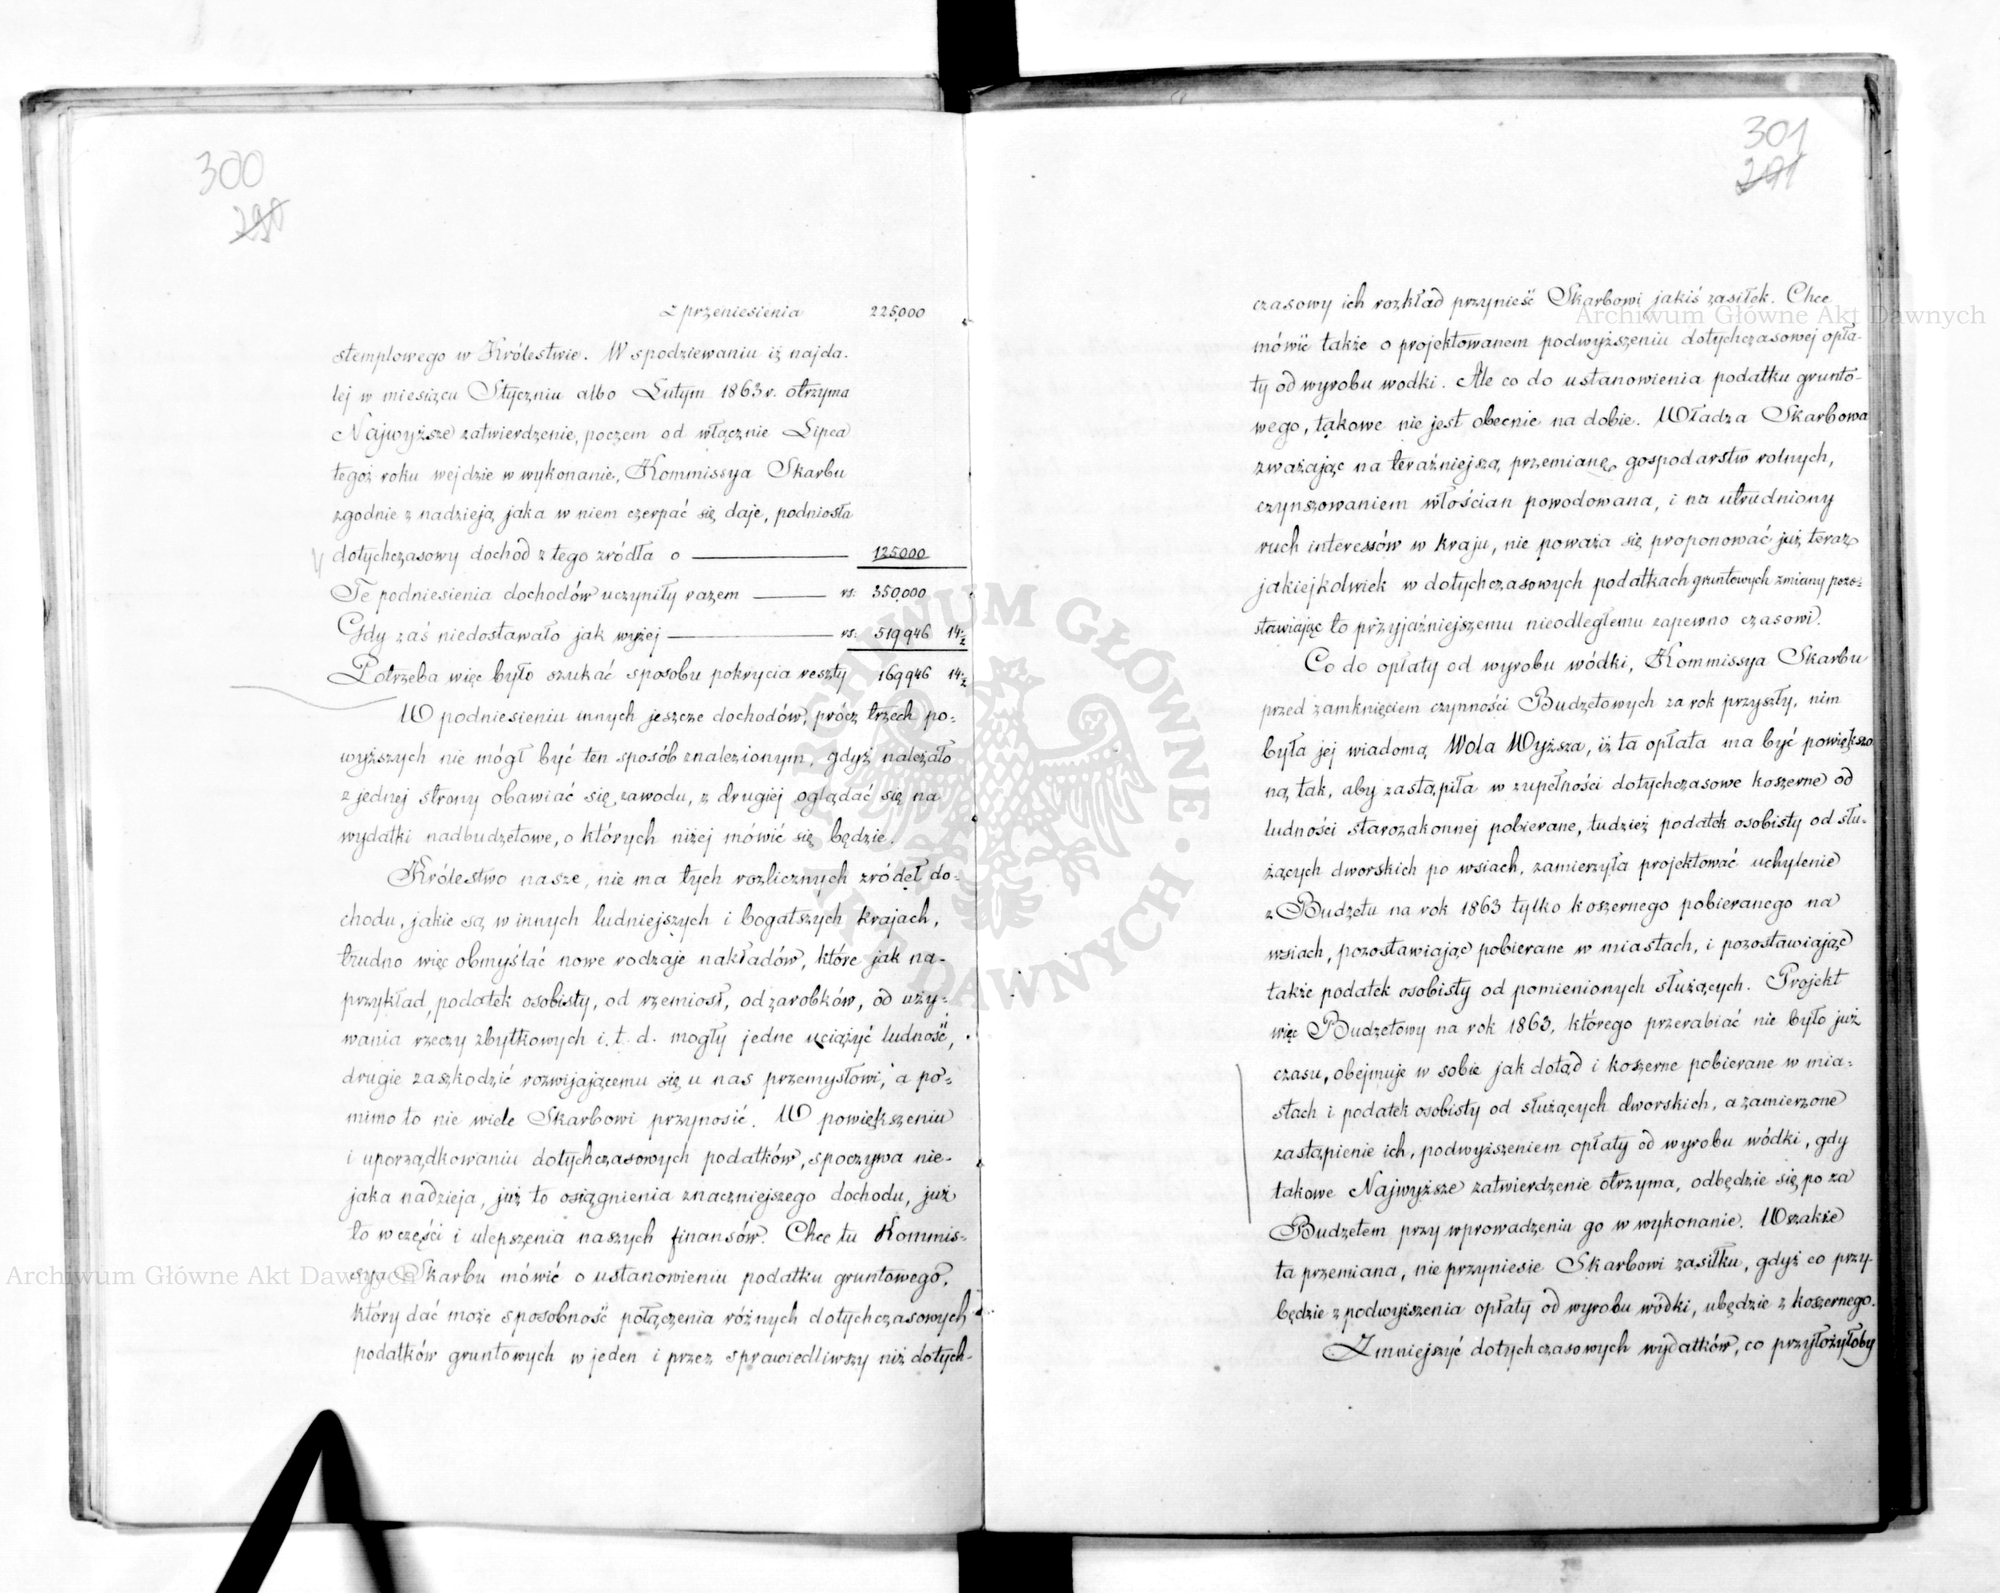 300
290
z przeniesienia 225,000
stemplowego w Królestwie. W spodziewaniu iż najda-
lej w miesiącu Styczniu albo Lutym 1863 r. otrzyma
Najwyższe zatwierdzenie, poczem od włącznie Lipca
tegoż roku wejdzie w wykonanie, Kommissya Skarbu
zgodnie z nadzieją jaka w niem czerpać się daje, podniosła
dotychczasowy dochód z tego zródła o 125,000
Te podniesienia dochodów uczyniły razem rs: 350,000
Gdy zaś niedostawało jak wyżej rs: 519,946 14½
Potrzeba więc było szukać sposobu pokrycia reszty 169,946 14½
W podniesieniu innych jeszcze dochodów, prócz trzech po-
wyższych nie mógł być ten sposób znalezionym, gdyż należało
z jednej strony obawiać się zawodu, z drugiej oglądać się na
wydatki nadbudżetowe, o których niżej mówić się będzie.
Królestwo nasze, nie ma tych rozlicznych zródeł do-
chodu, jakie są w innych ludniejszych i bogatszych krajach,
trudno więc obmyślać nowe rodzaje nakładów, które jak na-
przykład, podatek osobisty, od rzemiosł, od zarobków, od uży-
wania rzeczy zbytkowych i. t. d. mogły jedne uciążyć ludność,
drugie zaszkodzić rozwijającemu się u nas przemysłowi, a po-
mimo to nie wiele Skarbowi przynosić. W powiększeniu
i uporządkowaniu dotychczasowych podatków, spoczywa nie-
jaka nadzieja, już to osiągnienia znaczniejszego dochodu, już
to w części i ulepszenia naszych finansów. Chce tu Kommis-
sya Skarbu mówić o ustanowieniu podatku gruntowego,
który dać może sposobność połączenia różnych dotychczasowych
podatków gruntowych w jeden i przez sprawiedliwszy niż dotych-
301
291
czasowy ich rozkład przynieść Skarbowi jakiś zasiłek. Chce
mówić także o projektowanem podwyższeniu dotychczasowej opła-
ty od wyrobu wodki. Ale co do ustanowienia podatku grunto-
wego, takowe nie jest obecnie na dobie. Władza Skarbowa
zważając na teraźniejszą przemianę gospodarstw rolnych,
czynszowaniem włościan powodowaną, i na utrudniony
ruch interessów w kraju, nie poważa się proponować już teraz
jakiejkolwiek w dotychczasowych podatkach gruntowych zmiany pozo-
stawiając to przyjaźniejszemu nieodległemu zapewno czasowi.
Co do opłaty od wyrobu wódki, Kommissya Skarbu
przed zamknięciem czynności Budżetowych za rok przyszły, nim
była jej wiadomą Wola Wyższa, iż ta opłata ma być powiększo
ną tak, aby zastąpiła w zupełności dotychczasowe koszerne od
ludności starozakonnej pobierane, tudzież podatek osobisty od słu-
żących dworskich po wsiach, zamierzyła projektować uchylenie
z Budżetu na rok 1863 tylko koszernego pobieranego na
wsiach, pozostawiając pobierane w miastach, i pozostawiając
także podatek osobisty od pomienionych służących. Projekt
więc Budżetowy na rok 1863, którego przerabiać nie było już
czasu, obejmuje w sobie jak dotąd i koszerne pobierane w mia-
stach i podatek osobisty od służących dworskich, a zamierzone
zastąpienie ich, podwyższeniem opłaty od wyrobu wódki, gdy
takowe Najwyższe zatwierdzenie otrzyma, odbędzie się po za
Budżetem przy wprowadzeniu go w wykonanie. Wszakże
ta przemiana, nie przyniesie Skarbowi zasiłku, gdyż co przy-
będzie z podwyższenia opłaty od wyrobu wódki, ubędzie z koszernego.
Zmniejszyć dotychczasowych wydatków, co przyłożyłoby